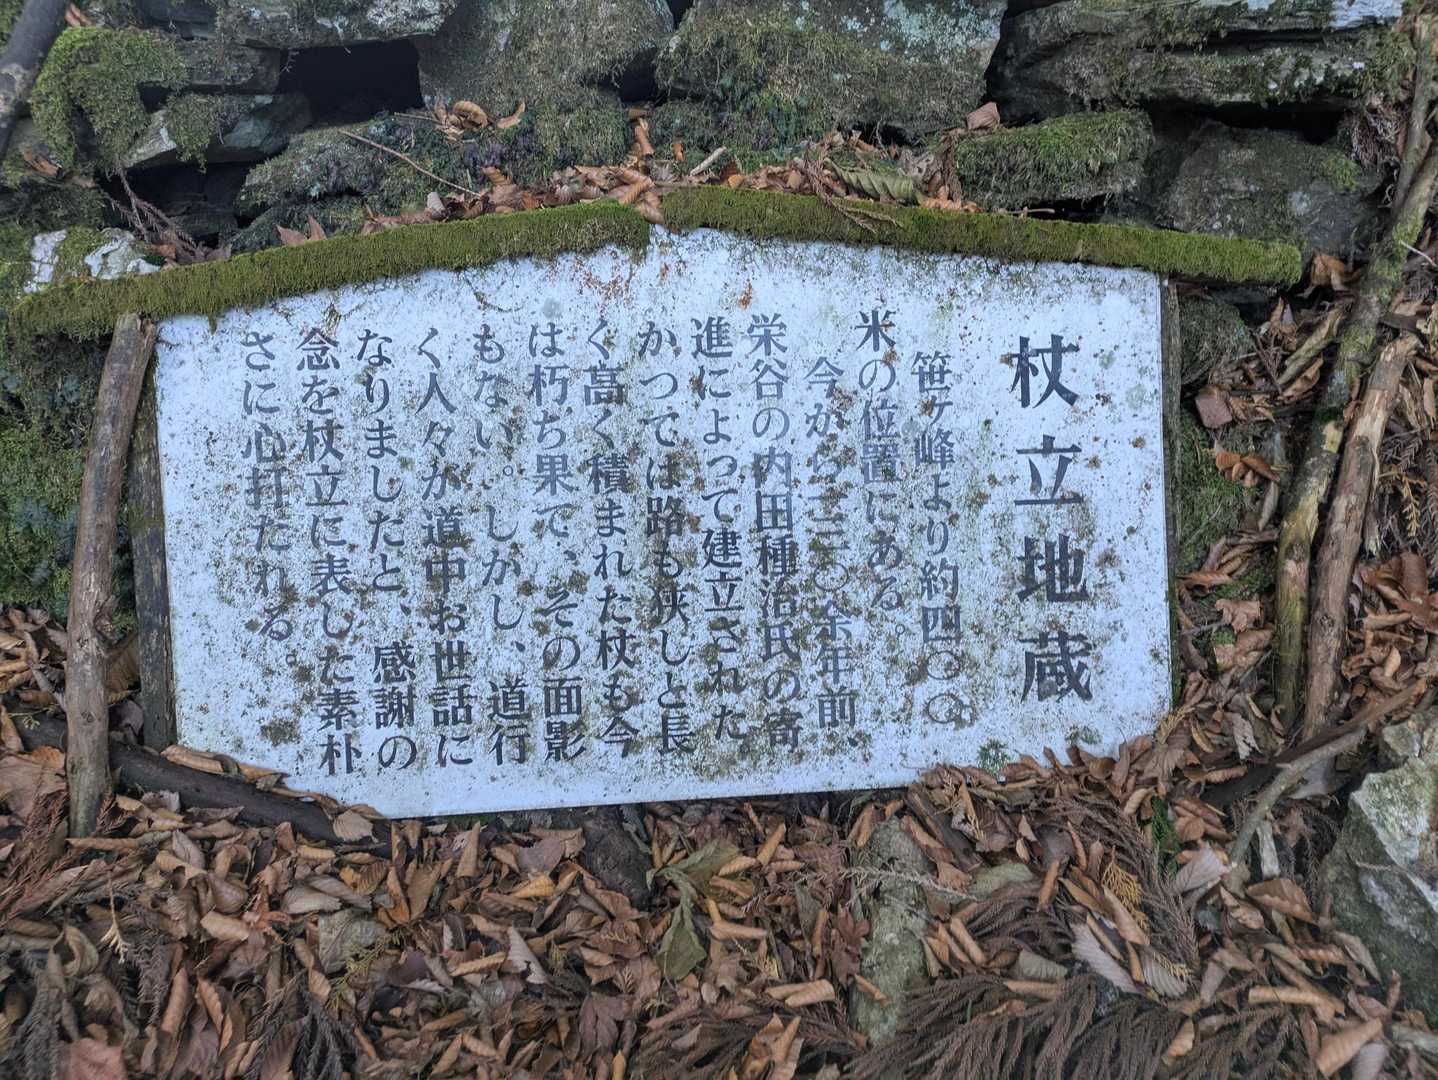 杖立地蔵
笹ヶ峰より約四〇〇
米の位置にある。
今から二三〇余年前、
栄谷の内田種治氏の寄
進によって建立された。
かつては路も狭しと長
く高く積まれた杖も今
は朽ち果て、その面影
もない。しかし、道行
く人々が道中お世話に
なりましたと、感謝の
念を杖立に表した素朴
さに心打たれる。